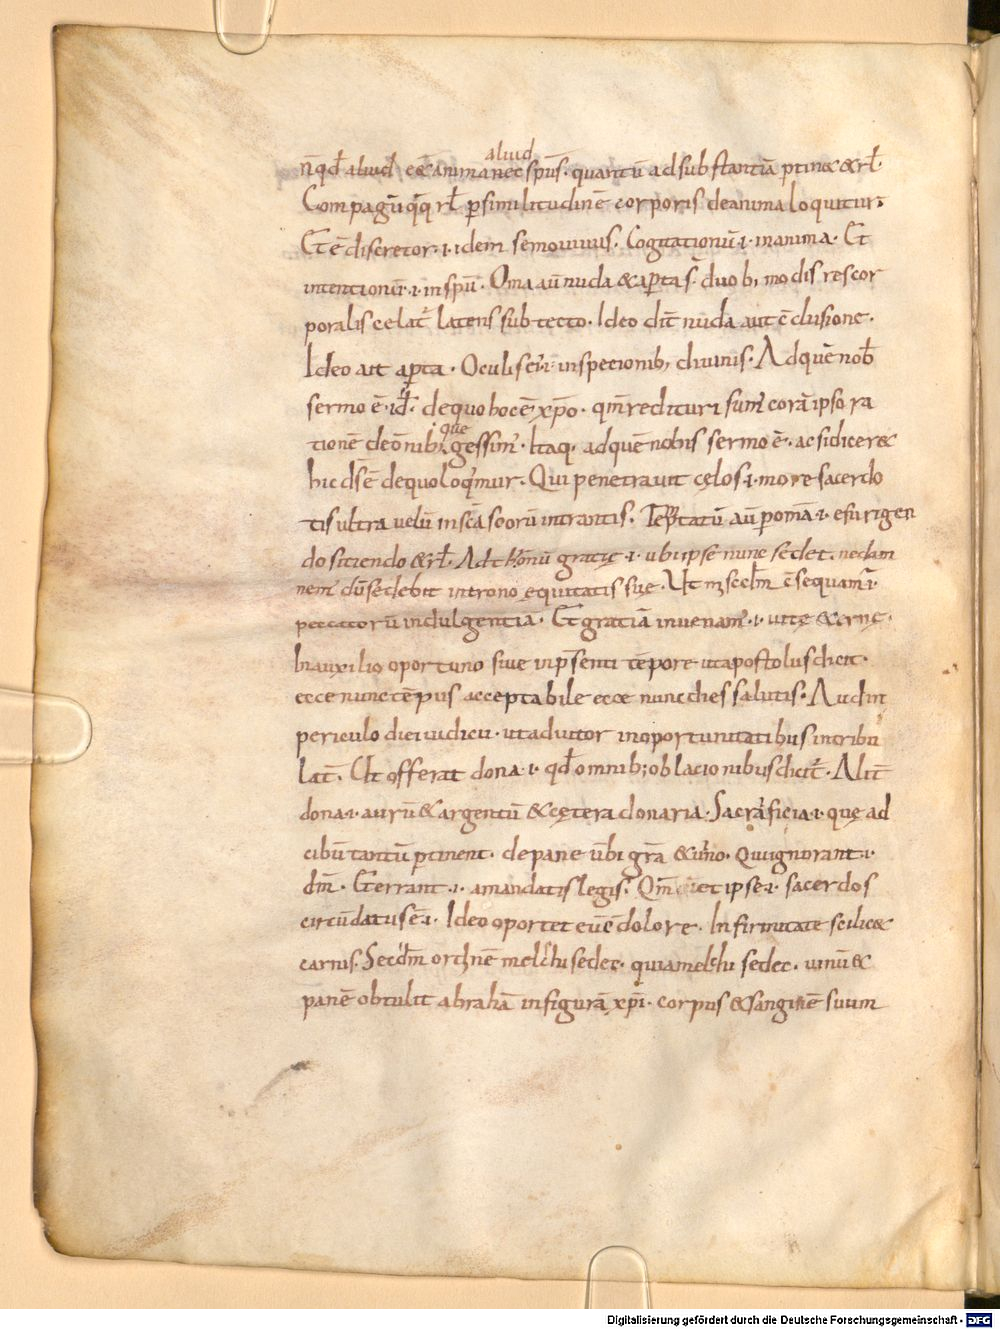 aliud
n̄ qđ aliud eēt anima nec sp̄us. quantū ad substantiā ꝑtinet & rł.
Compagū q̄q rł ꝑ similitudinē corporis de anima loquitur.
Et ē discretor .i. idem semouiuus. Cogitationū .i. in anima. Et
intentionū .i. in spū. Om̄a aū nuda & aꝑta s̄. duob; modis res cor
poralis celat̄ latens sub tecto. Ideo dic̄ nuda aut ē clusione.
Ideo ait aꝑta. Oculis ei .i. inspecionib; diuinis. Ad quē nob̄
sermo ē. id̄. de quo hoc ē xp̄o. qm̄ reddituri sum̄ corā ipso ra
que
tionē de om̄ib; gessim̄. Itaq. ad quē nobis sermo ē. ac si diceret
hic dsē de quo loq̄mur. Qui penetrauit cęlos .i. more sacerdo
tis ultra uelū in sc̄a sc̄orū intrantis. Temptatū aū ꝑ om̄a .i. esurigen
do sitiendo & rł. Adt hronū gratię .i. ubi ipse nunc sedet. ne dam
nem̄ dū sedebit in trono equitatis suę. Ut m̄sc̄d̄m c̄sequam̄ .i.
peccatorū indulgentiā. Et gratiā inuenam̄ .i. uitę &ernę.
In auxilio oportuno siue in p̄senti tēpore ut apostolus dicit.
ecce nunc tēpus acceptabile ecce nunc dies salutis. Aud in
periculo diei iudicii. ut adiutor in oportunitatibus in tribu
lat̄. Ut offerat dona .i. qđ omnib; oblacionibus dicit̄. Alit̄
dona .i. aurū & argentū & cętera donaria. Sacrificia .i. quę ad
cibū tantū ꝑtinent. de pane ūbi grā & uino. Qui ignorant .i.
dm̄. Et errant .i. a mandatis legis. Qm̄ et ipse .i. sacerdos
circūdatus ē .i. Ideo oportet eū c̄dolore. Infirmitate scilicet
carnis. Secd̄m ordinē melchisedec. quia melchisedec. uinū &
panē obtulit abrahā in figurā xp̄i. corpus & sanginē suum
Digitalisierung gefördert durch die Deutsche Forschungsgemeinschaft - DFG